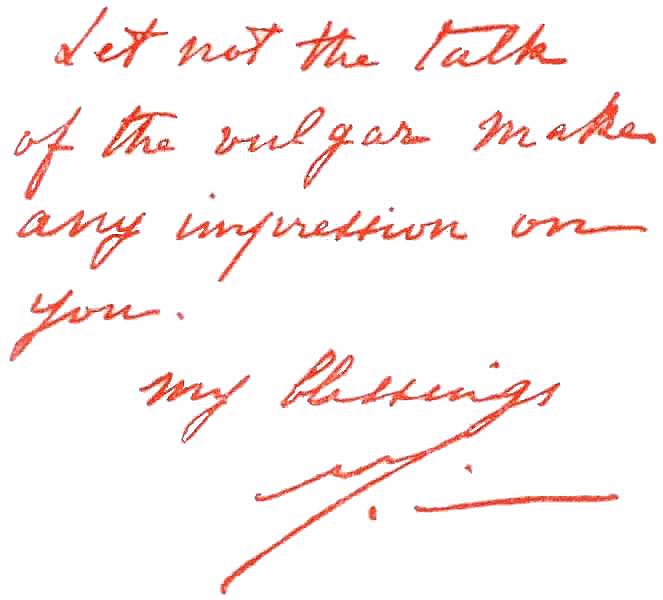 Let not the talk
of the vulgar makes
any impression on
you.
my blessings